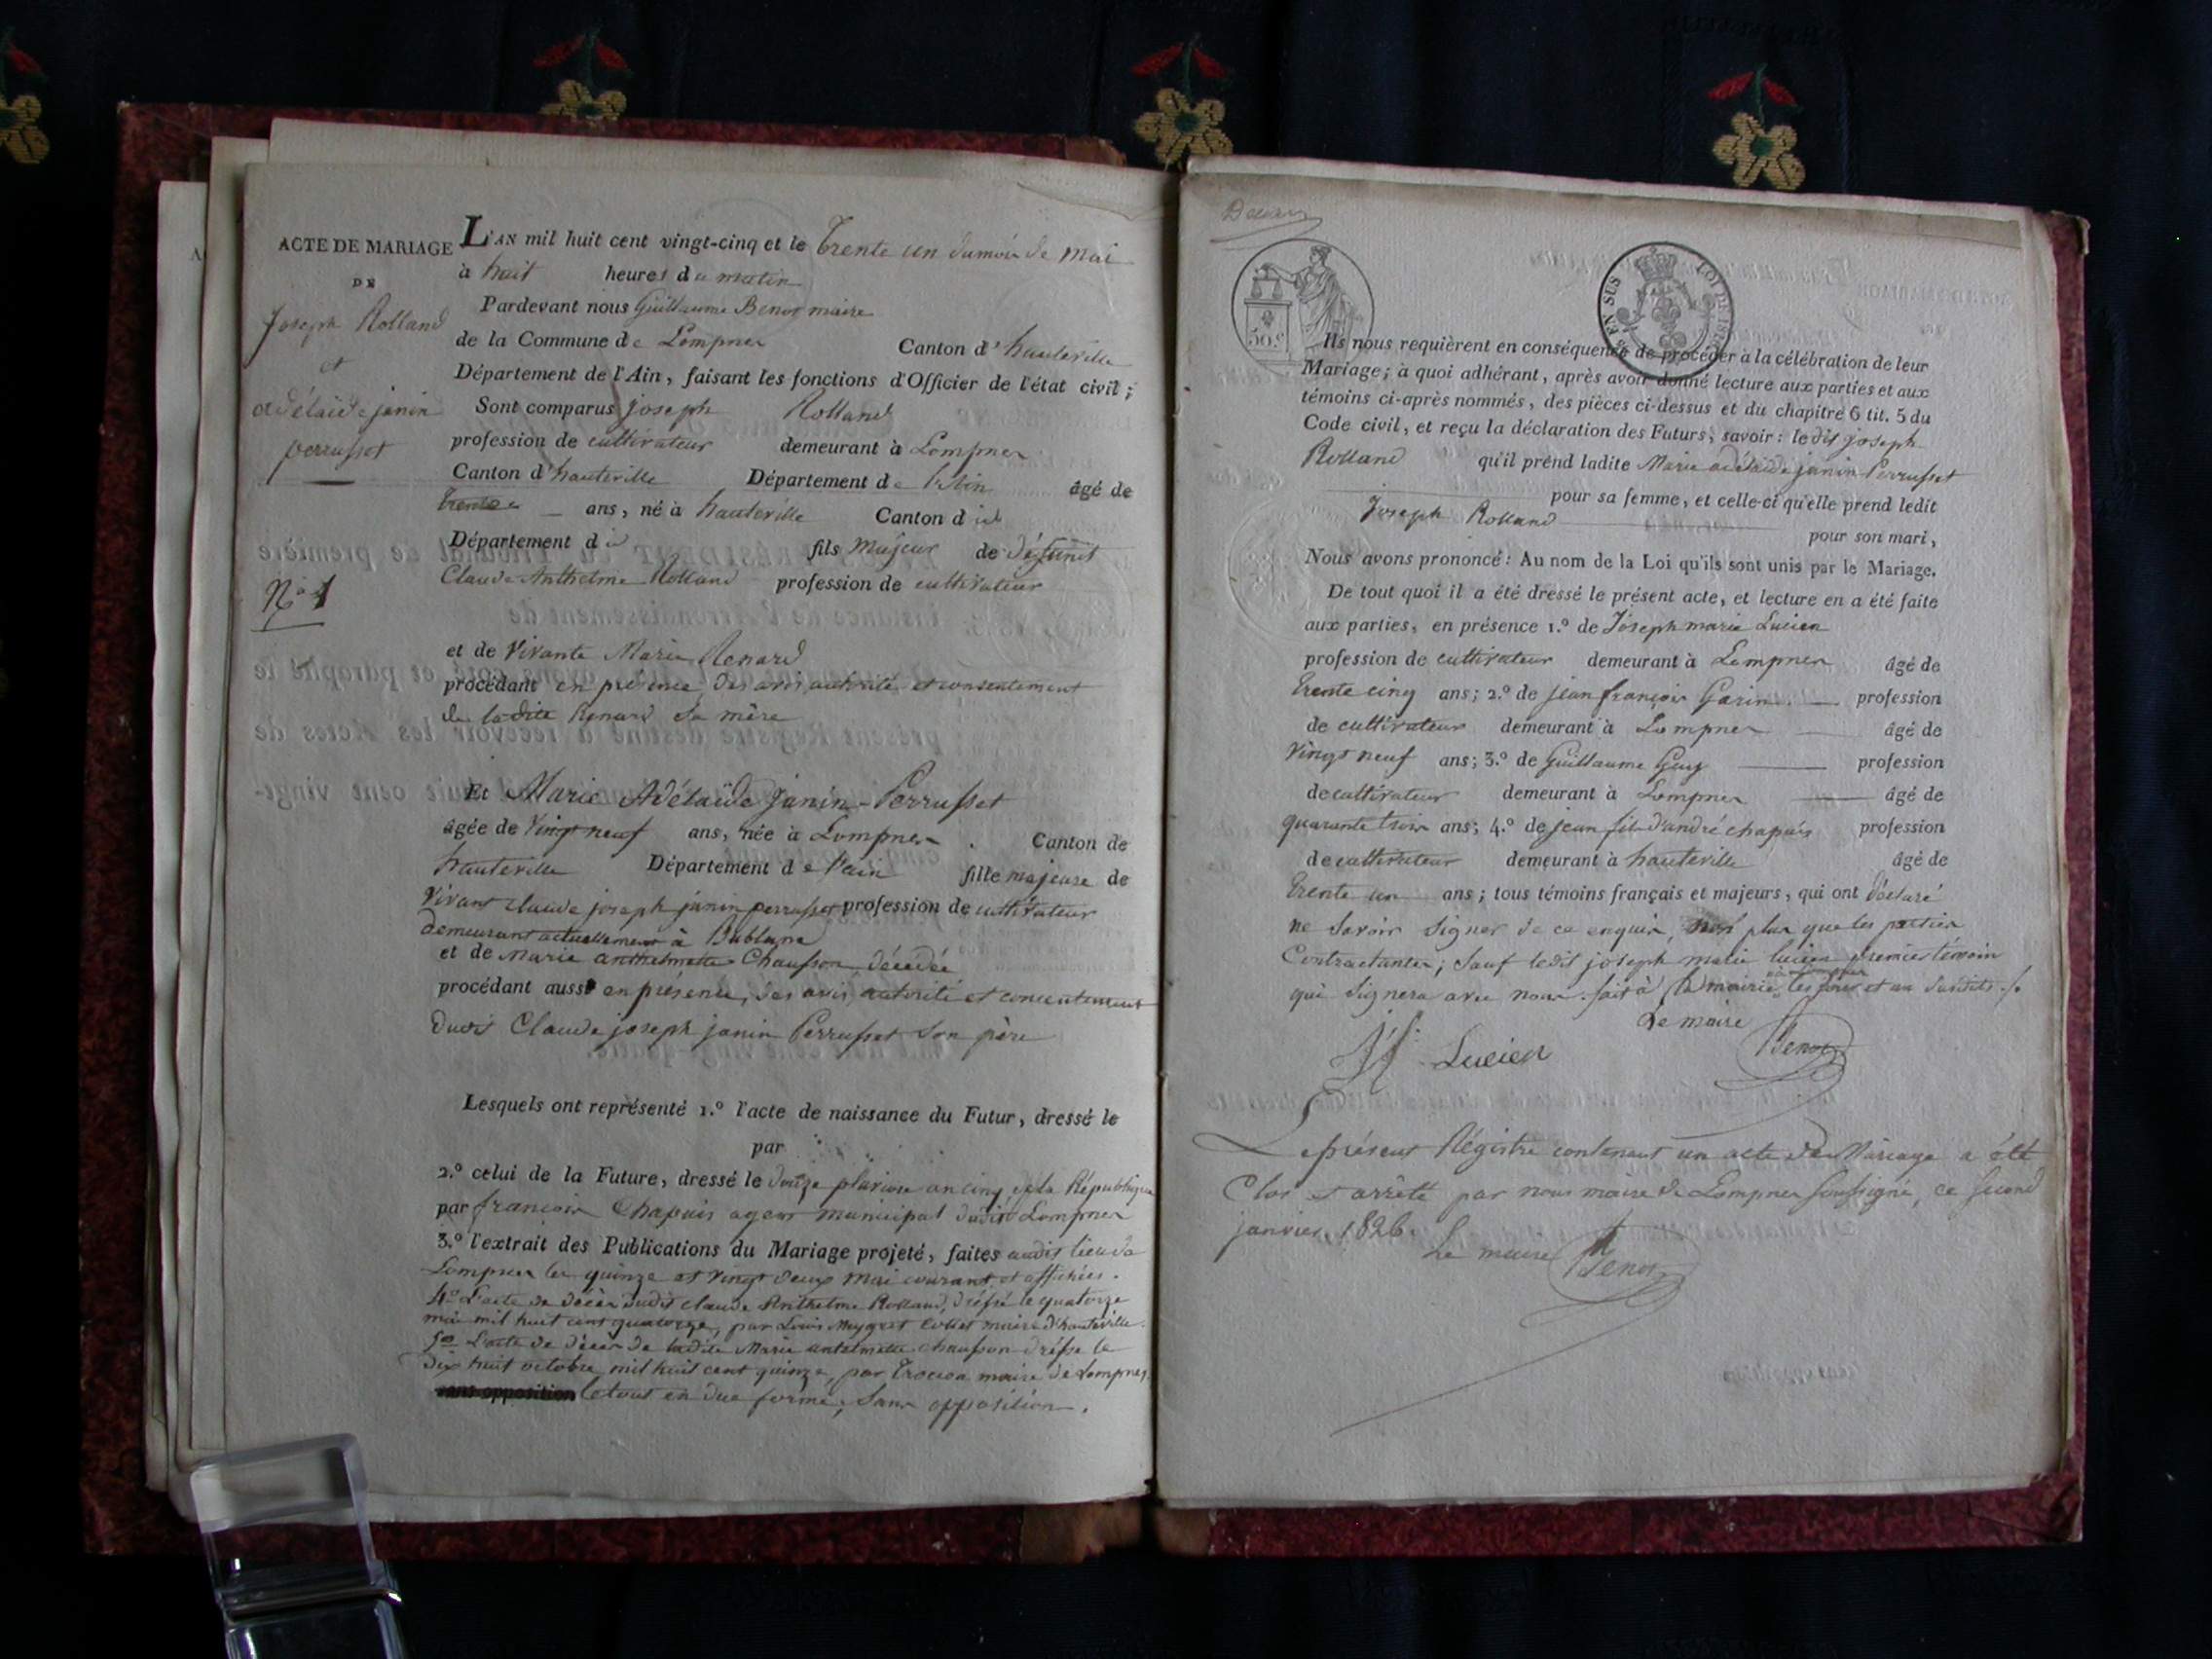 ACTE DE MARIAGE
DE
Joseph Rolland
et
adélaïde janin
perrusset
N.º 1
L'AN mil huit cent vingt-cinq et le trente un du mois de mai
à huit heures du matin
Pardevant nous Guillaume Benoz maire
de la Commune de Lompnes Canton d'hauteville
Département de l'Ain, faisant les fonctions d'Officier de l'état civil;
Sont comparus joseph Rolland
profession de cultivateur demeurant à Lompnes
Canton d'hauteville Département de l'Ain âgé de
trente ans, né à hauteville Canton d id
Département d id fils Majeur de défunt
Claude Anthelme Rolland profession de cultivateur
et de Vivante Marie Renard
procédant en présence, des avis, autorité, et consentement
de ladite Renard Sa mère
Et Marie Adélaïde Janin-Perrusset
âgée de Vingt neuf ans, née à Lompnes Canton de
hauteville Département de l'ain fille majeure de
Vivant claude joseph janin perrusset profession de cultivateur
demeurant actuellement à
et de Marie anthelmette Chausson, décédée
procédant aussi en présence, des avis, autorité et consentement
dudit Claude joseph janin Perrusset Son père
Lesquels ont représenté 1.º l'acte de naissance du Futur, dressé le
par
2.º celui de la Future, dressé le douze pluviose an cinq de la République
par françois Chapuis agent municipal dudit Lompnes
3.º l'extrait des Publications du Mariage projeté, faites audit lieu de
Lompnes les quinze et vingt deux Mai courant, et affichées.
4º L'acte de décès dudit claude Anthelme Rolland, dréssé le quatorze
mai mil huit cent quatorze, par Louis Maygret Collet maire d'hauteville.
5º L'acte de décès de ladite Marie antelmette chausson dréssé le
Dix huit octobre mil huit cent quinze, par maire de Lompnes,
sans opposition le tout en due forme, Sans opposition.
50.c
EN SUS LOI DE 1816
Ils nous requièrent en conséquence de procéder à la célébration de leur
Mariage; à quoi adhérant, après avoir donné lecture aux parties et aux
témoins ci-après nommés, des pièces ci-dessus et du chapitre 6 tit. 5 du
Code civil, et reçu la déclaration des Futurs, savoir: ledit joseph
Rolland qu'il prend ladite Marie adélaïde janin-Perrusset
pour sa femme, et celle-ci qu'elle prend ledit
Joseph Rolland pour son mari,
Nous avons prononcé: Au nom de la Loi qu'ils sont unis par le Mariage.
De tout quoi il a été dressé le présent acte, et lecture en a été faite
aux parties, en présence 1.º de Joseph marie Lucien
profession de cultivateur demeurant à Lompnes âgé de
trente cinq ans; 2.º de jean françois Garin profession
de cultivateur demeurant à Lompnes âgé de
Vingt neuf ans; 3.º de Guillaume Guy profession
de cultivateur demeurant à Lompnes âgé de
quarante trois ans; 4.º de jean fils d'andré chapuis profession
de cultivateur demeurant à hauteville âgé de
trente un ans; tous témoins français et majeurs, qui ont déclaré
ne Savoir Signer de ce enquis, non plus que les parties
Contractantes; Sauf ledit joseph marie lucien premier témoin
qui Signera avec nous. fait à la mairie les jour et an Susdits
Le maire
Lucien Benoz
Le présent Régistre contenant un acte de Mariage a été
Clos et arrêté par nous maire de Lompnes Soussigné, ce Second
janvier 1826.
Le maire Benoz